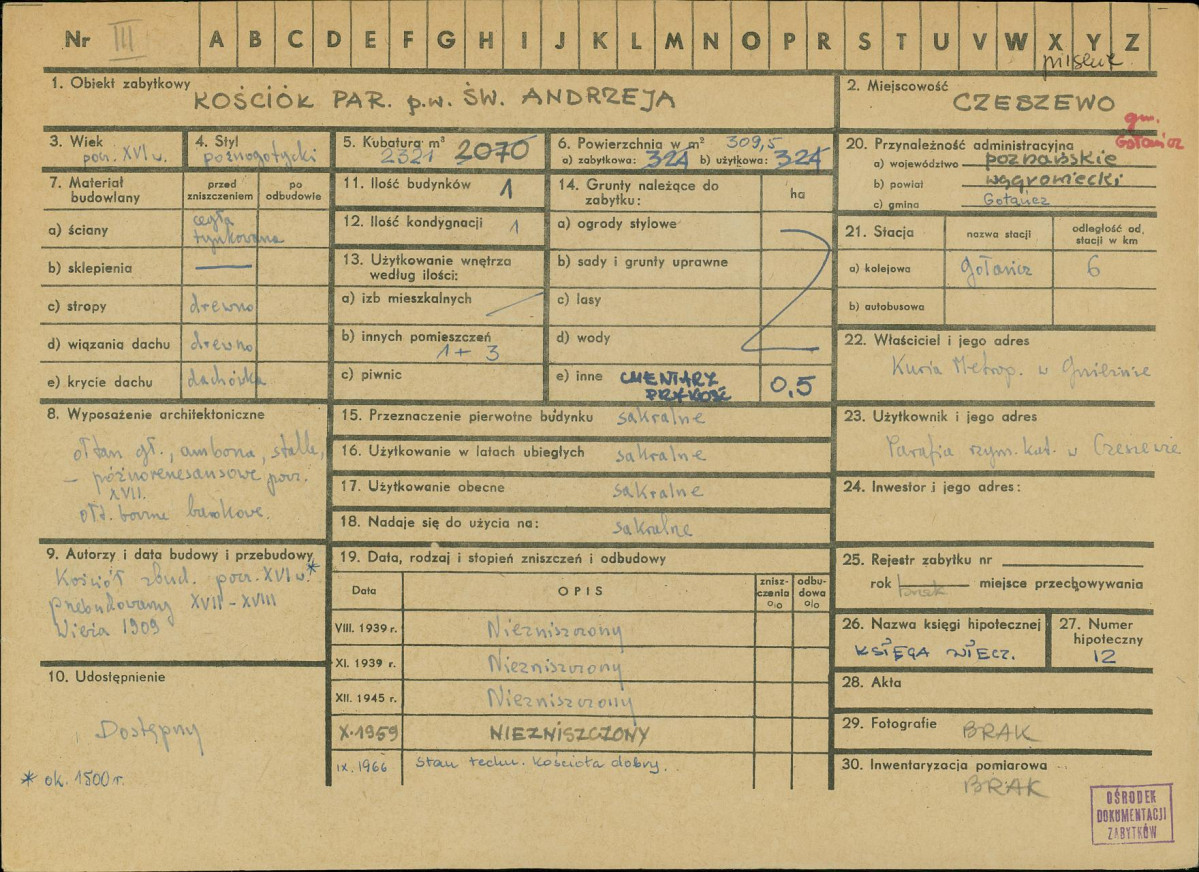 Nr III A B C D E F G H I J K L M N O P R S T U V W X Y Z
1. Obiekt zabytkowy
KOŚCIÓŁ PAR. p.w. ŚW. ANDRZEJA
2. Miejscowość
CZESZEWO
gm. Gołańcz
3. Wiek
pocz. XVI w.
4. Styl
późnogotycki
5. Kubatura m³
2321 2070
6. Powierzchnia w m² 309,5
a) zabytkowa: 324 b) użytkowa: 324
7. Materiał budowlany
przed zniszczeniem
po odbudowie
a) ściany
cegła
tynkowana
b) sklepienia —
c) stropy drewno
d) wiązania dachu drewno
e) krycie dachu dachówka
8. Wyposażenie architektoniczne
ołtarz gł., ambona, stalle,
– późnorenesansowe pocz.
XVII.
ołt. boczne barokowe.
9. Autorzy i data budowy i przebudowy
Kościół zbud. pocz. XVI w.*
przebudowany XVII - XVIII
Wieża 1909
10. Udostępnienie
Dostępny
* ok. 1500 r.
11. Ilość budynków 1
12. Ilość kondygnacji 1
13. Użytkowanie wnętrza
według ilości:
a) izb mieszkalnych
b) innych pomieszczeń
1 + 3
c) piwnic
14. Grunty należące do
zabytku:
ha
a) ogrody stylowe
b) sady i grunty uprawne
c) lasy
d) wody
e) inne CMENTARZ
PRZYKOŚĆ 0,5
15. Przeznaczenie pierwotne budynku sakralne
16. Użytkowanie w latach ubiegłych sakralne
17. Użytkowanie obecne sakralne
18. Nadaje się do użycia na: sakralne
19. Data, rodzaj i stopień zniszczeń i odbudowy
Data
OPIS
znisz-
czenia
%
odbu-
dowa
%
VIII. 1939 r. Niezniszczony
XI. 1939 r. Niezniszczony
XII. 1945 r. Niezniszczony
X.1959 NIEZNISZCZONY
IX. 1966 Stan techn. kościoła dobry.
20. Przynależność administracyjna
a) województwo poznańskie
b) powiat wągrowiecki
c) gmina Gołańcz
21. Stacja
nazwa stacji
odległość od.
stacji w km
a) kolejowa Gołańcz 6
b) autobusowa
22. Właściciel i jego adres
Kuria Metrop. w Gnieźnie
23. Użytkownik i jego adres
Parafia rzym. kat. w Czeszewie
24. Inwestor i jego adres:
25. Rejestr zabytku nr
rok miejsce przechowywania
26. Nazwa księgi hipotecznej
KSIĘGA WIECZ.
27. Numer
hipoteczny
12
28. Akta
29. Fotografie
BRAK
30. Inwentaryzacja pomiarowa
BRAK
OŚRODEK
DOKUMENTACJI
ZABYTKÓW